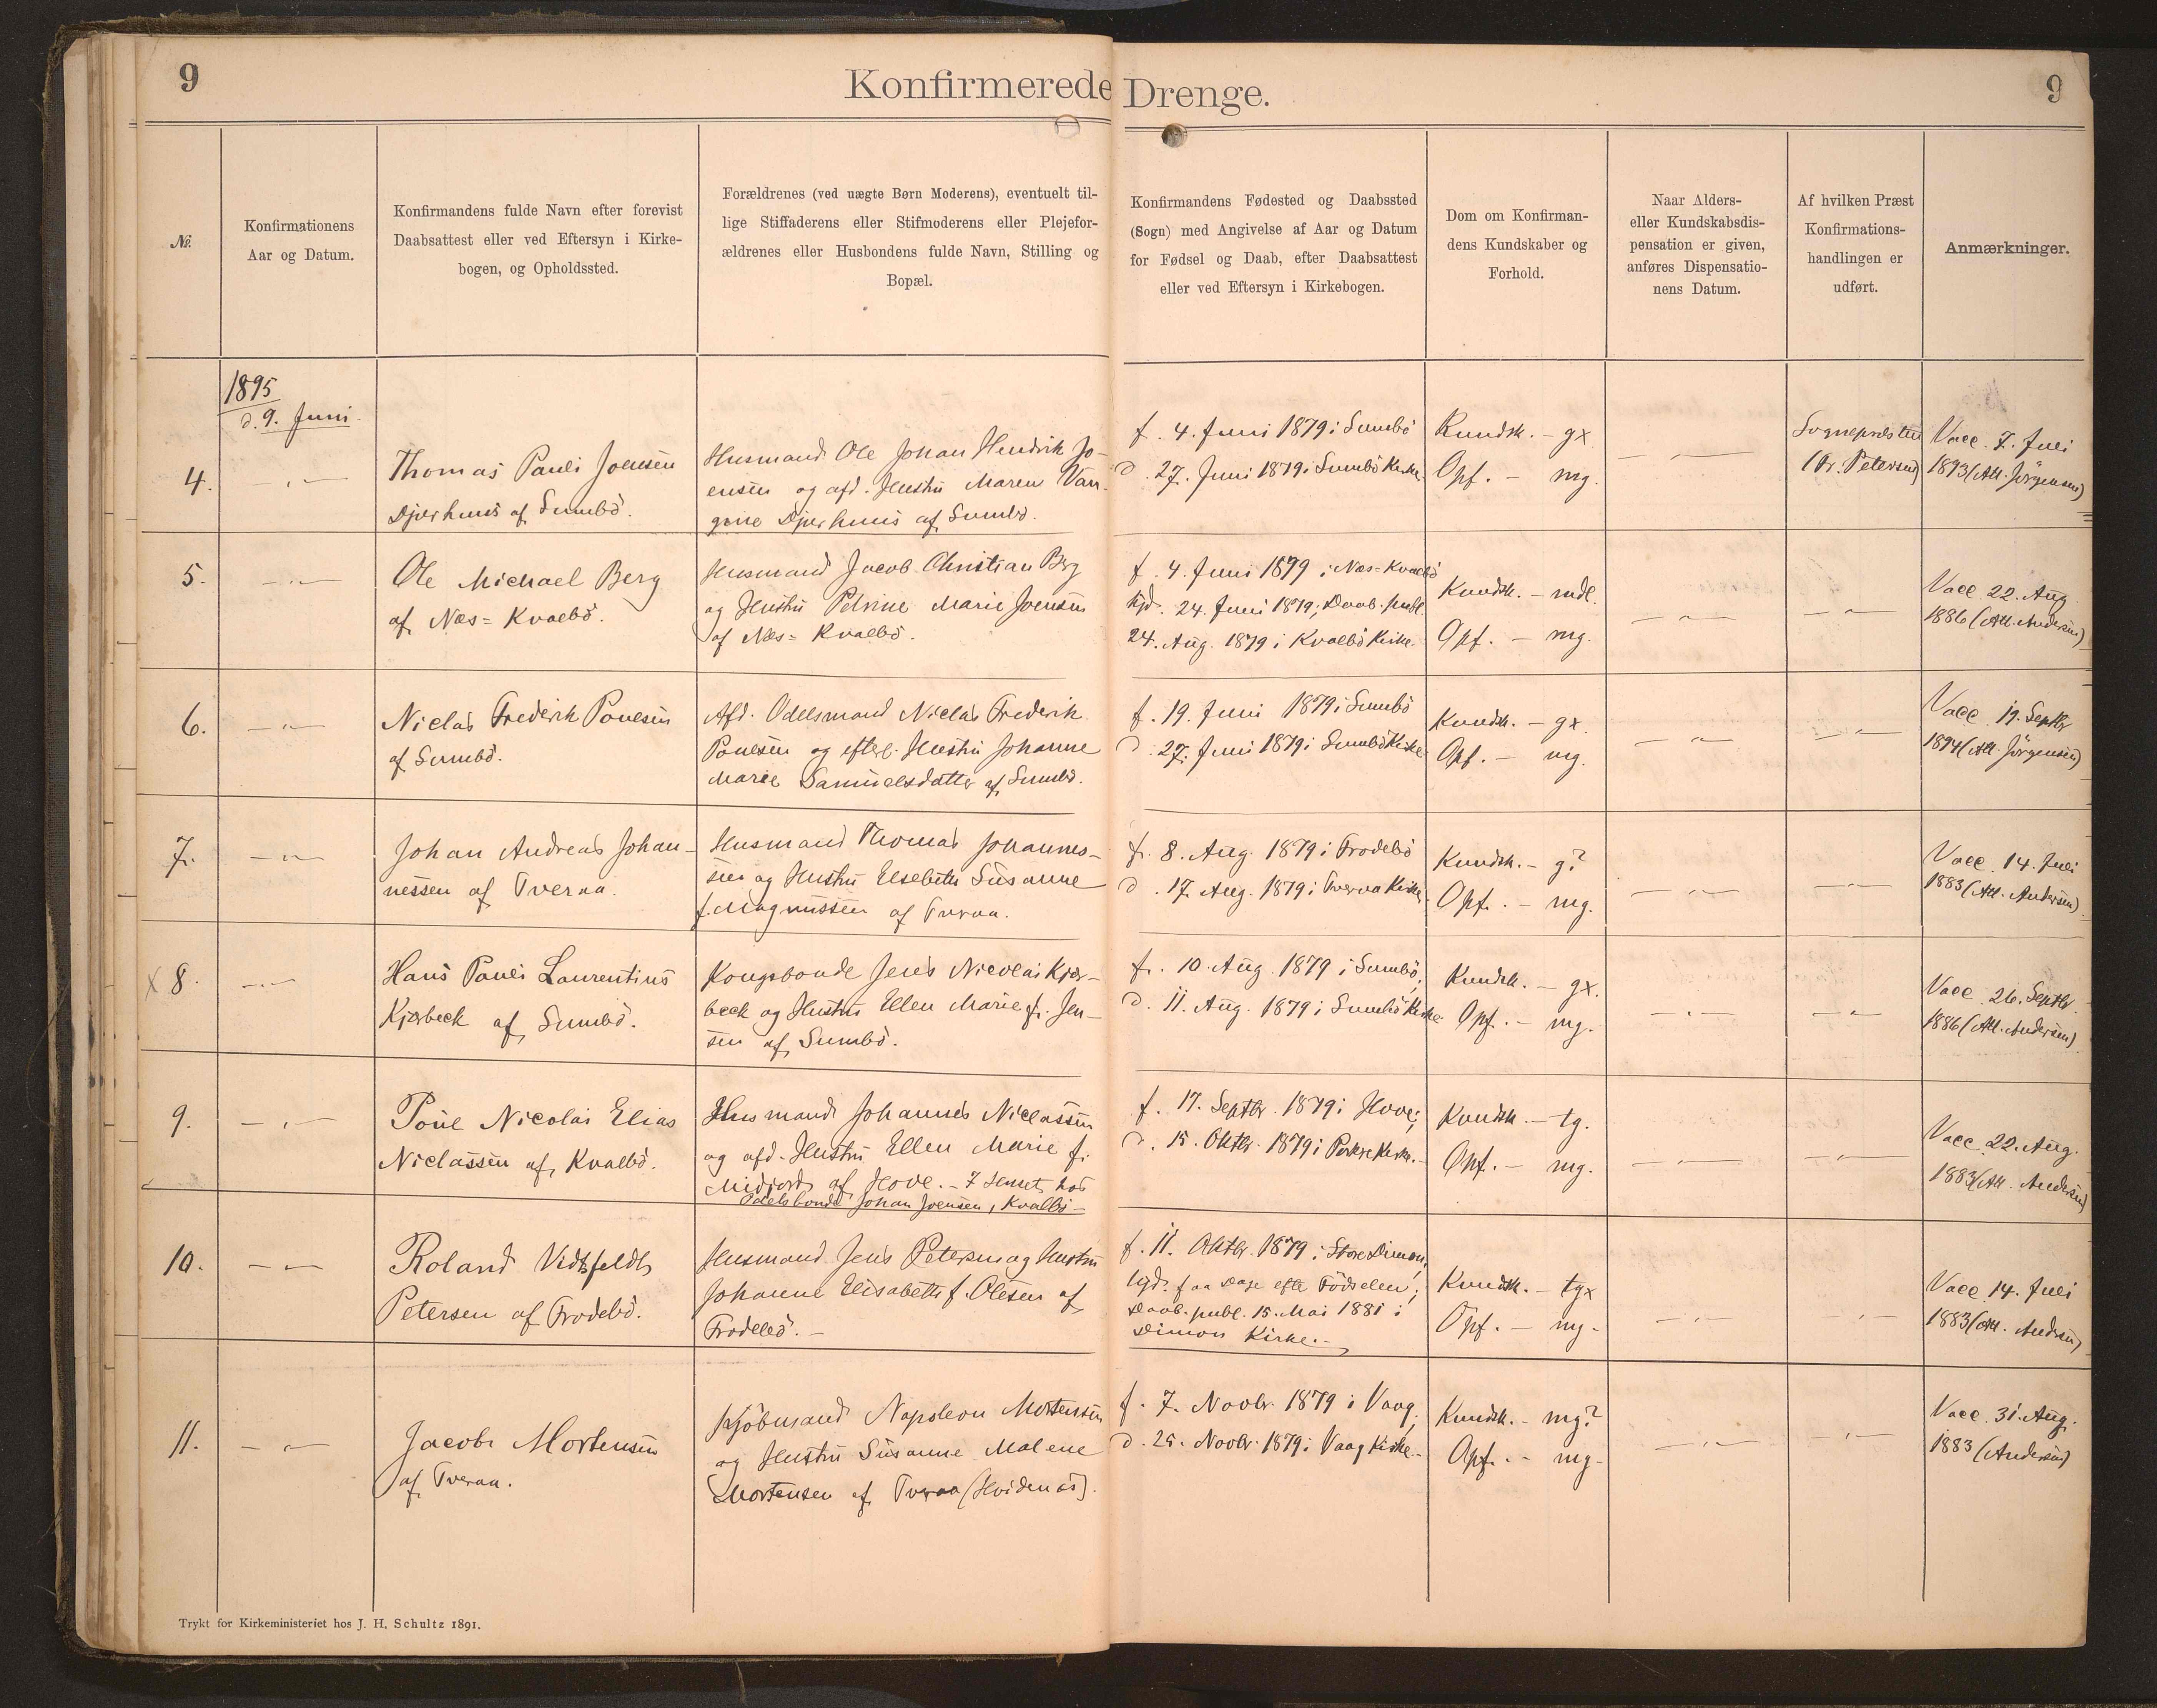 9
Konfirmerede Drenge.
9
№
Konfirmationens
Aar og Datum.
Konfirmandens fulde Navn efter forevist
Daabsattest eller ved Eftersyn i Kirke-
bogen, og Opholdssted.
Forældrenes (ved uægte Børn Moderens), eventuelt til-
lige Stiffaderens eller Stifmoderens eller Plejefor-
ældrenes eller Husbondens fulde Navn, Stilling og
Bopæl.
Konfirmandens Fødested og Daabssted
(Sogn) med Angivelse af Aar og Datum
for Fødsel og Daab, efter Daabsattest
eller ved Eftersyn i Kirkebogen.
Dom om Konfirman-
dens Kundskaber og
Forhold.
Naar Alders-
eller Kundskabsdis-
pensation er given,
anføres Dispensatio-
nens Datum.
Af hvilken Præst
Konfirmations-
handlingen er
udført.
Anmærkninger.
1895
d. 9. Juni
4.
— „ —
Thomas Pauli Joensen
Djurhuus af Sumbö.
Husmand Ole Johan Hendrik Jo-
ensen og afd. Hustru Maren
Djurhuus af Sumbö.
f. 4. Juni 1879 i Sumbö
d. 27. Juni 1879 i Sumbö Kirke.
Kundsk. — gx
Opf. — mg.
— „ —
Sognepræsten
(Fr. Petersen)
Vacc. 7. Juli
1893 (Att. Jörgensen)
5.
— „ —
Ole Michael Berg
af Næs = Kvalbö.
Husmand Jacob Christian Berg
og Hustru Petrine Marie Joensen
af Næs = Kvalbö.
f. 4. Juni 1879 i Næs = Kvalbö
hjd. 24. Juni 1879; Daab. publ.
24. Aug. 1879 i Kvalbö Kirke.
Kundsk. — mdl.
Opf. — mg.
— „ —
— „ —
Vacc. 22. Aug.
1886 (Att. Andersen)
6.
— „ —
Niclas Frederik Poulsen
af Sumbö.
Afd. Odelsmand Niclas Frederik
Poulsen og efterl. Hustru Johanne
Marie Samuelsdatter af Sumbö.
f. 19. Juni 1879 i Sumbö
d. 27. Juni 1879 i Sumbö Kirke
Kundsk. — gx.
Opf. — mg.
— „ —
— „ —
Vacc. 19. Septbr
1894 (Att. Jörgensen)
7.
— „ —
Johan Andreas Johan-
nessen af Tveraa.
Husmand Thomas Johannes-
sen og Hustru Elsebeth Susanne
f. Magnussen af Tveraa.
f. 8. Aug. 1879 i Frodebö
d. 17. Aug. 1879 i Tveraa Kirke.
Kundsk. — g?
Opf. — mg.
— „ —
— „ —
Vacc. 14. Juli
1883 (Att. Andersen)
x 8.
— „ —
Hans Pauli Laurentius
Kjærbeck af Sumbö.
Kongsbonde Jens Nicolai Kjær-
beck og Hustru Ellen Marie f. Jen-
sen af Sumbö.
f. 10. Aug. 1879 i Sumbö;
d. 11. Aug. 1879 i Sumbö Kirke
Kundsk. — gx.
Opf. — mg.
— „ —
— „ —
Vacc. 26. Septbr.
1886 (Att. Andersen)
9.
— „ —
Poul Nicolai Elias
Niclassen af Kvalbö.
Husmand Johannes Niclassen
og afd. Hustru Ellen Marie f.
Midjord af Hove. — I Huset hos
Odelsbonde Johan Joensen, Kvalbö —
f. 17. Septbr. 1879 i Hove;
d. 15. Oktbr. 1879 i Porkere Kirke.
Kundsk. — tg.
Opf. — mg.
— „ —
— „ —
Vacc. 22. Aug.
1883 (Att. Andersen)
10.
— „ —
Roland Vidtfeldt
Petersen af Frodebö.
Husmand Jens Petersen og Hustru
Johanne Elisabeth f. Olesen af
Frodebö. —
f. 11. Oktbr. 1879 i Store Dimon,
hjd. faa Dage efter Födselen;
Daab. publ. 15. Mai 1881 i
Dimon Kirke. —
Kundsk. — tgx
Opf. — mg.
— „ —
— „ —
Vacc. 14. Juli
1883 (Att. Andersen)
11.
— „ —
Jacob Mortensen
af Tveraa.
Kjöbmand Napoleon Mortensen
og Hustru Susanne Malene
Mortensen af Tveraa (Hvidenæs).
f. 7. Novbr. 1879 i Vaag;
d. 25. Novbr. 1879 i Vaag Kirke. —
Kundsk. — mg?
Opf. — mg.
— „ —
— „ —
Vacc. 31. Aug.
1883 (Andersen)
Trykt for Kirkeministeriet hos J. H. Schultz 1891.